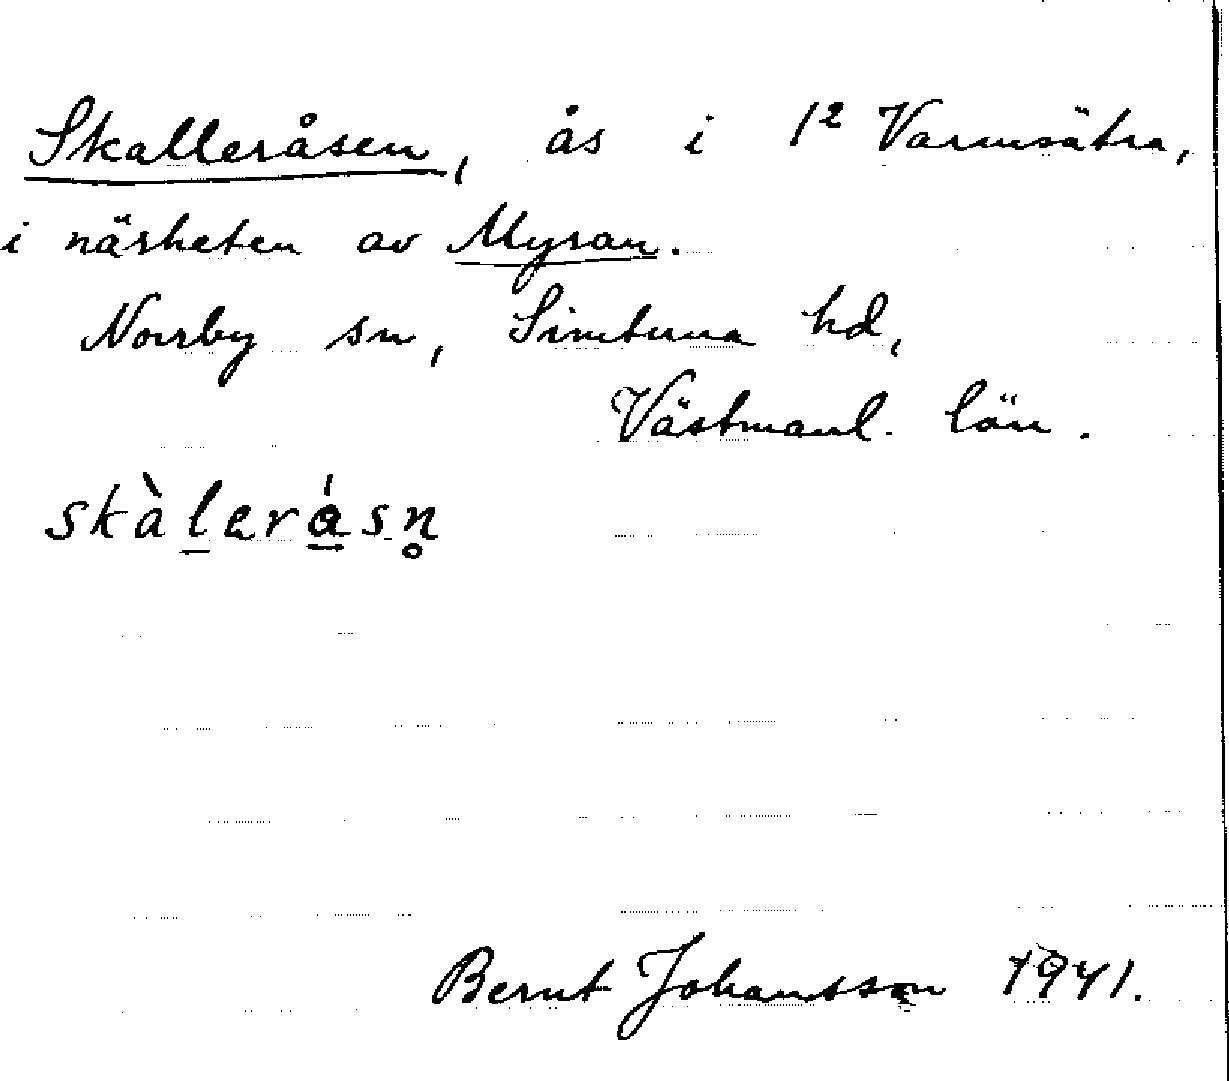 Skalleråsen, ås i 1² Varmsätra,
i närheten av Myran.
Norrby sn, Simtuna hd,
Västmanl. län.
skàl̲erá̲sn̥
Bernt Johansson 1941.